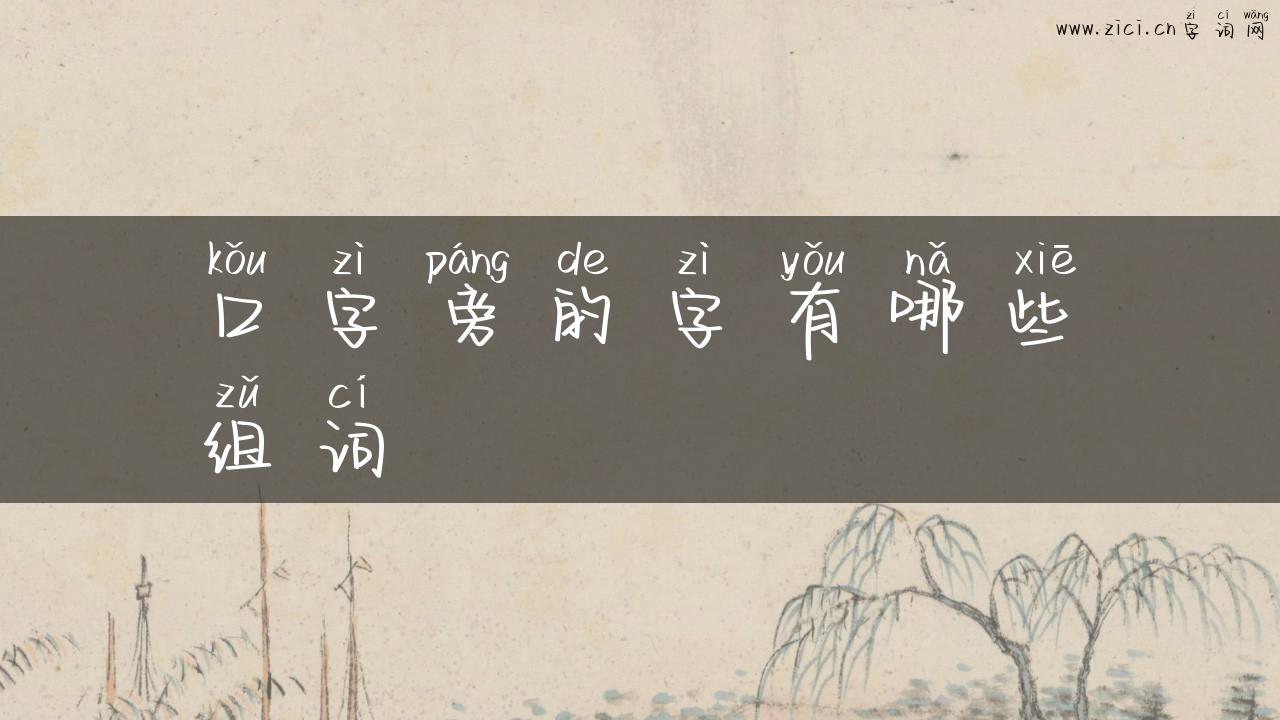 zì cí wǎng
www.zici.cn 字词网
kǒu zì páng de zì yǒu nǎ xiē
口字旁的字有哪些
zǔ cí
组词